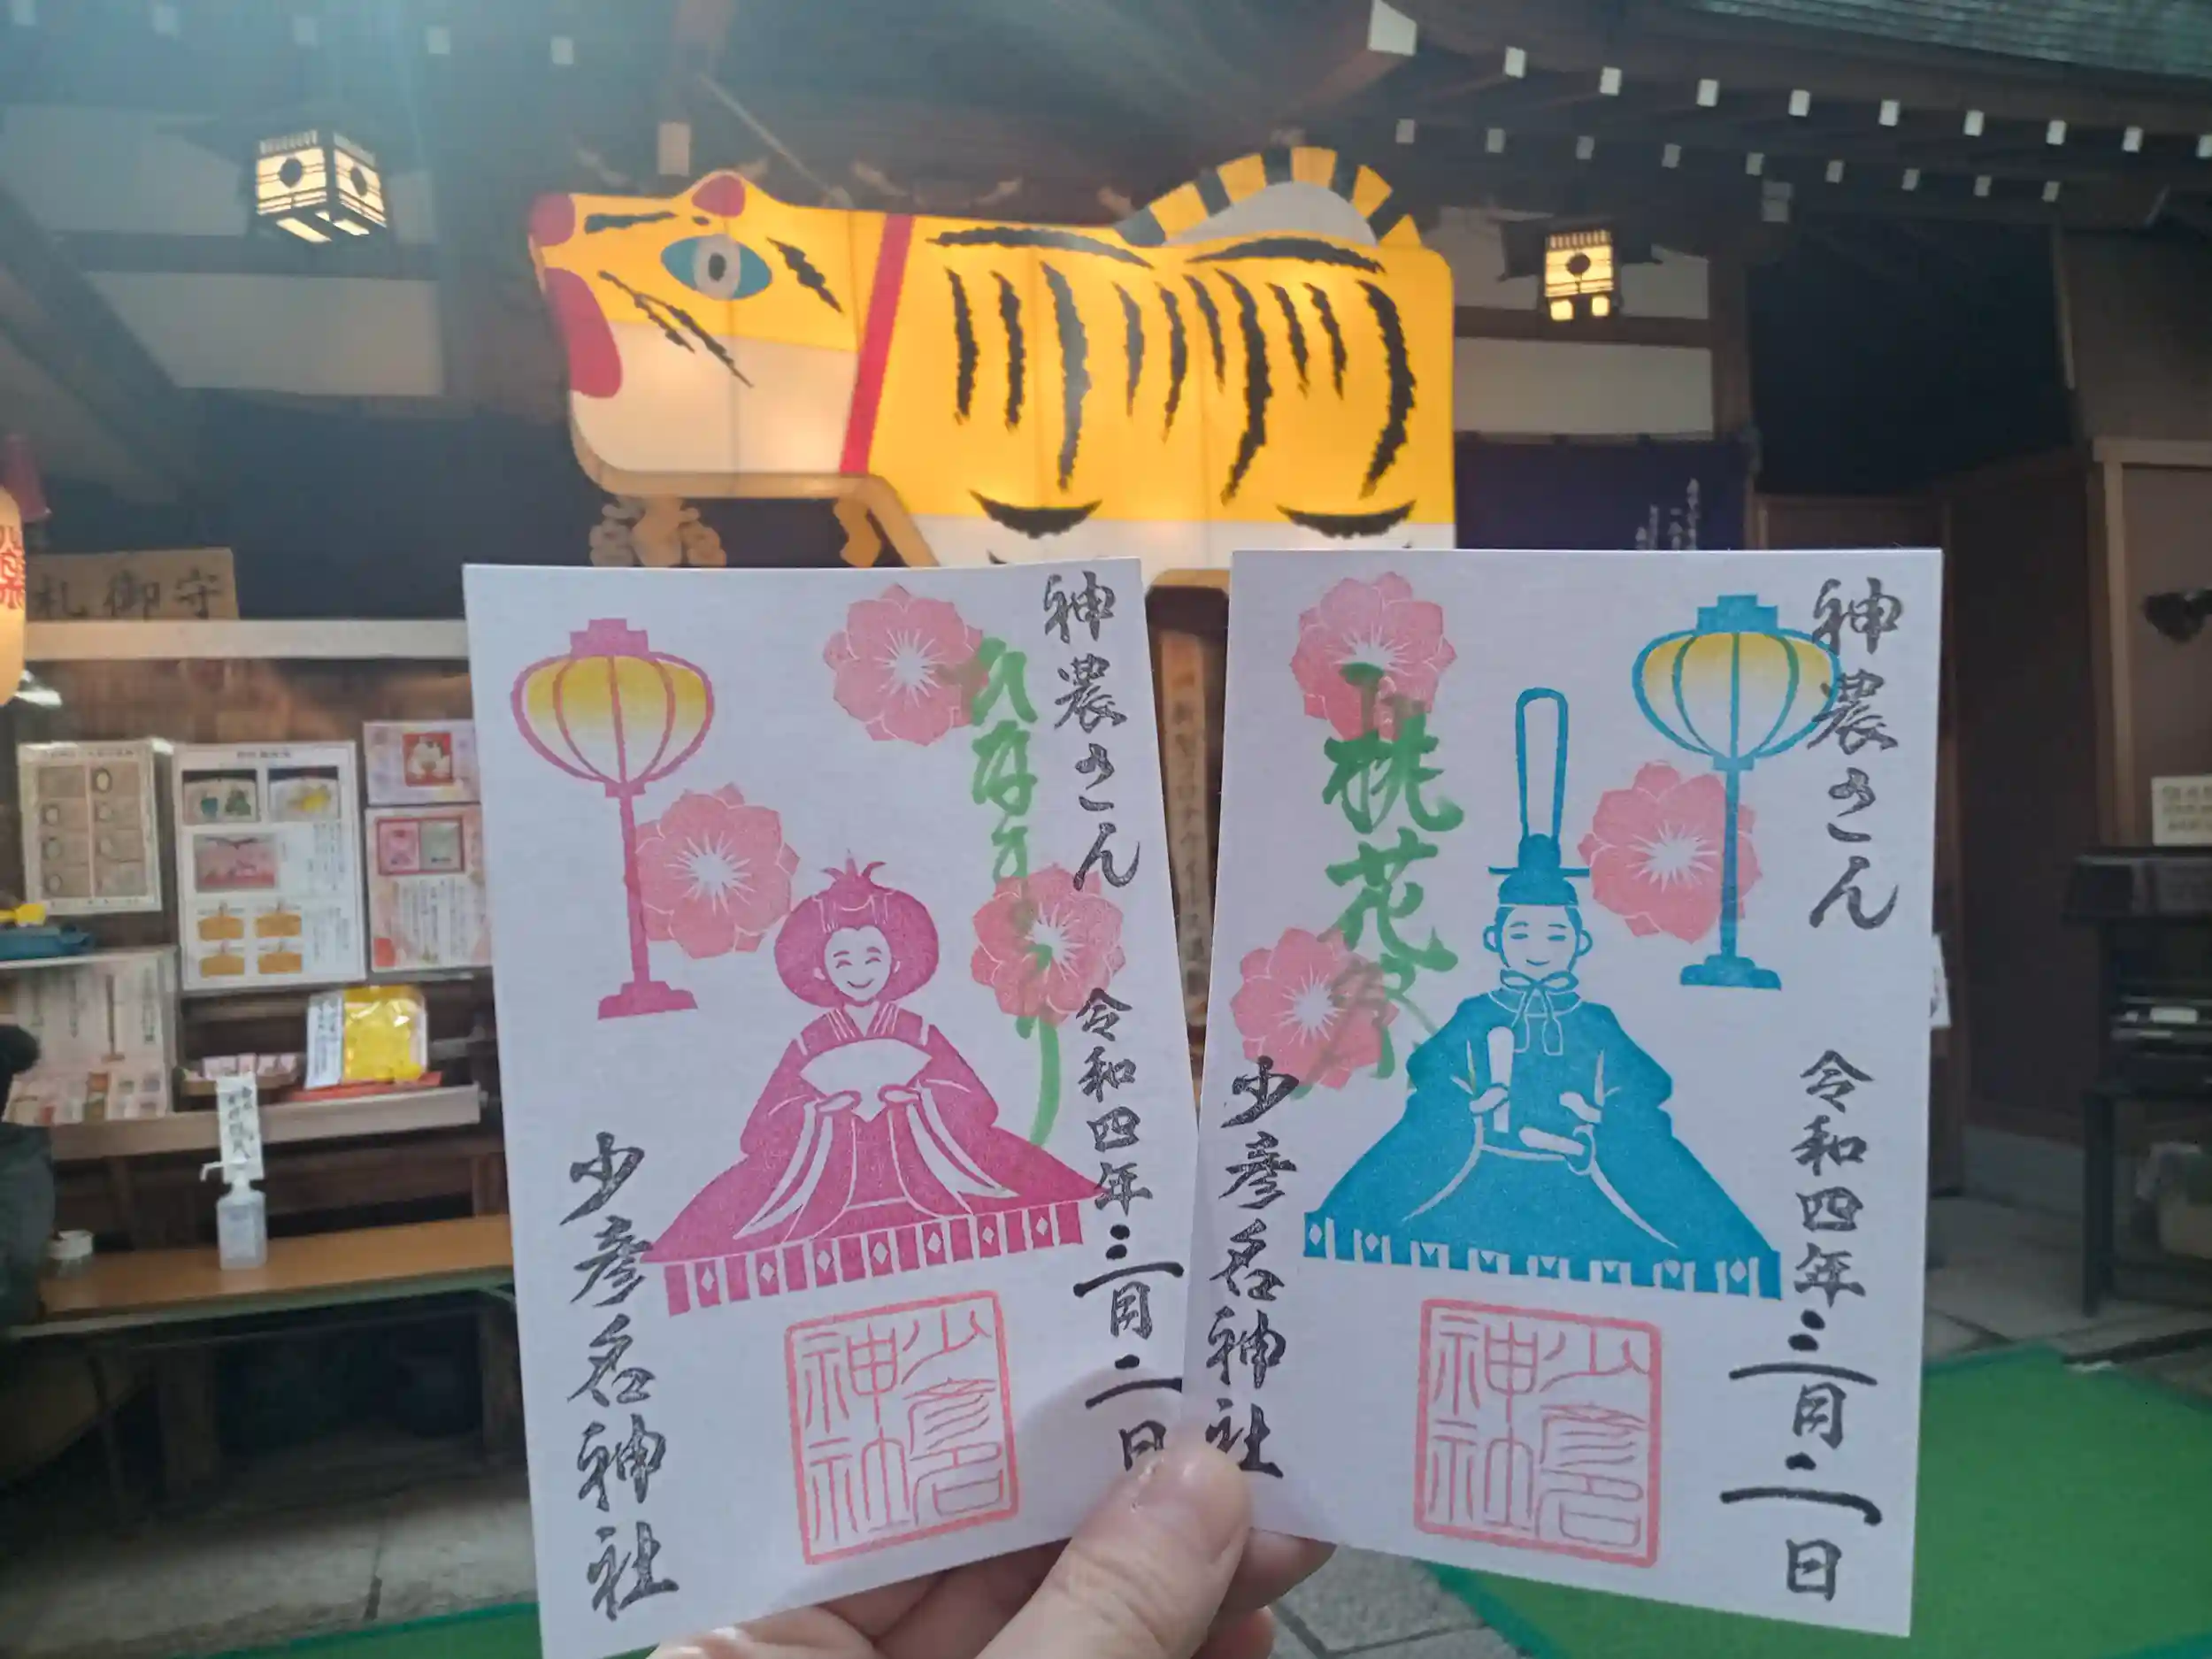 札御守
神農さん
ひなまつり
令和四年三月二日
少彦名神社
少彦名
神社
神農さん
桃花祭
令和四年三月二日
少彦名神社
少彦名
神社